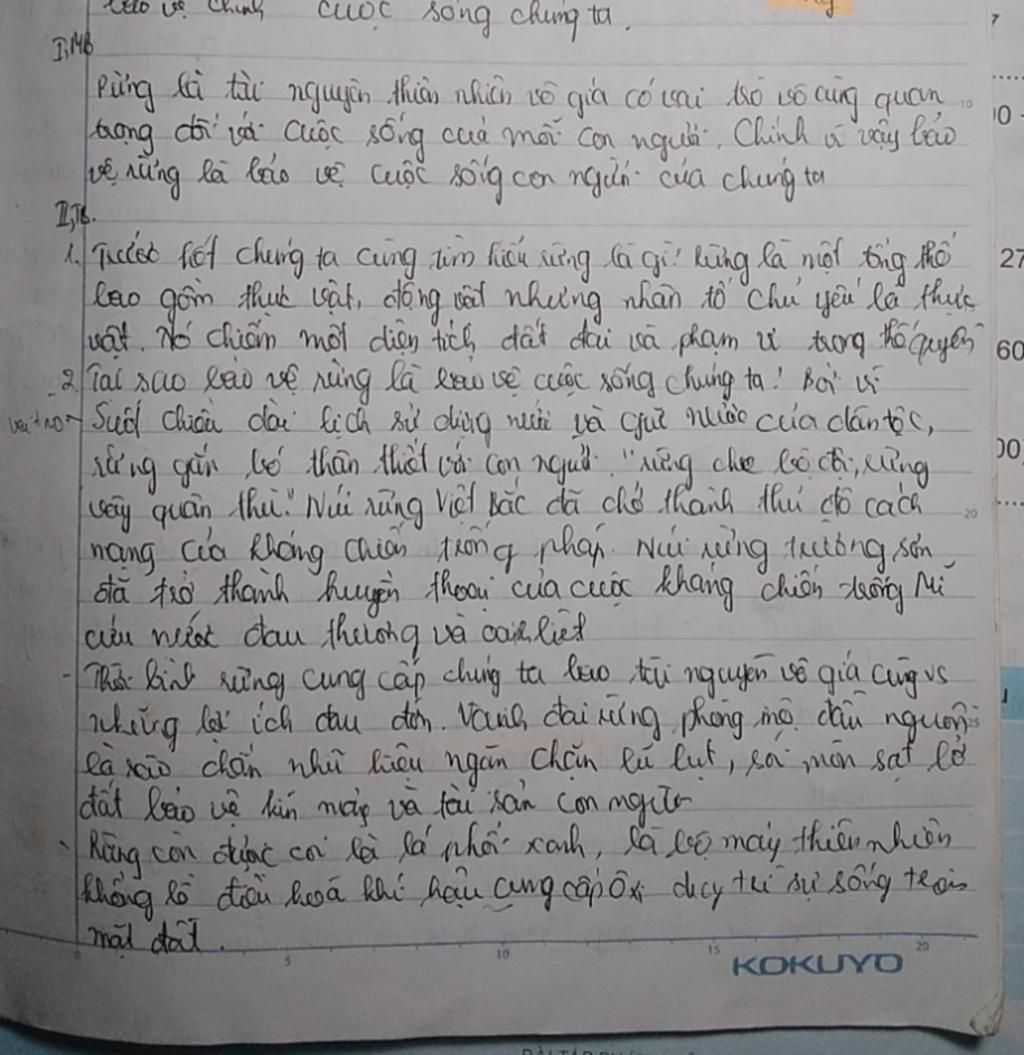 bảo vệ chính cuộc sống chúng ta.
I, MB
Rừng là tài nguyên thiên nhiên vô giá có vai trò vô cùng quan
trọng đối với cuộc sống của mỗi con người. Chính vì vậy bảo
vệ rừng là bảo vệ cuộc sống con người của chúng ta
II, TB.
1. Trước hết chúng ta cùng tìm hiểu rừng là gì? Rừng là một tổng thể
bao gồm thực vật, động vật nhưng nhân tố chủ yếu là thực
vật. Nó chiếm một diện tích đất đai và phạm vi trong khí quyển
2. Tại sao bảo vệ rừng là bảo vệ cuộc sống chúng ta? Bởi vì
vai trò - Suốt chiều dài lịch sử dựng nước và giữ nước của dân tộc,
rừng gắn bó thân thiết với con người. "rừng che bộ đội, rừng
vây quân thù". Núi rừng Việt Bắc đã trở thành thủ đô cách
mạng của kháng chiến chống pháp. Núi rừng trường sơn
đã trở thành huyền thoại của cuộc kháng chiến chống Mĩ
cứu nước đau thương và oanh liệt
- Thời bình rừng cung cấp chúng ta bao tài nguyên vô giá cùng vs
những lợi ích Vành đai rừng phòng hộ đầu nguồn
là rào chắn hữu hiệu ngăn chặn lũ lụt, sói mòn sạt lở
đất bảo vệ và tài sản con người
- Rừng còn được coi là lá phổi xanh, là bộ máy thiên nhiên
khổng lồ điều hoà khí hậu cung cấp ôxi duy trì sự sống trên
mặt đất.
0 5 10 15 20
KOKUYO
7
10
20
27
60
00